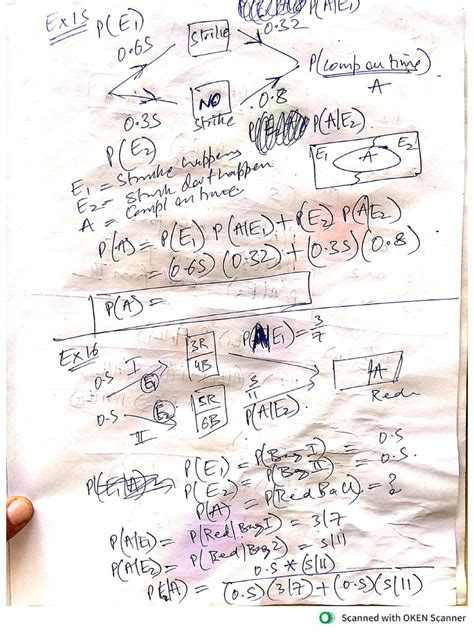 Ex 15 P(E1) P(A|E1)
0.65 Strike 0.32
P(comp on time)
A
NO
0.35 Strike 0.8
P(E2) P(A|E2).
E1 A E2
E1 = Strike happens
E2 = Strike don't happen
A = Compl on time
P(A) = P(E1) P(A|E1) + P(E2) P(A|E2)
= (0.65) (0.32) + (0.35) (0.8)
P(A) =
Ex 16
0.5 I E1 3R 4B P(A|E1) = 3/7
A
Red
0.5 II E2 5R 6B 5/11 P(A|E2).
P(E1) = P(Bag I) = 0.5
P(E2) = P(Bag II) = 0.5.
P(A) = P(Red Ball) = ?
P(A|E1) = P(Red|Bag I) = 3/7
P(A|E2) = P(Red|Bag 2) = 5/11
P(E2|A) = 0.5 * (5/11)
(0.5)(3/7) + (0.5)(5/11)
Scanned with OKEN Scanner